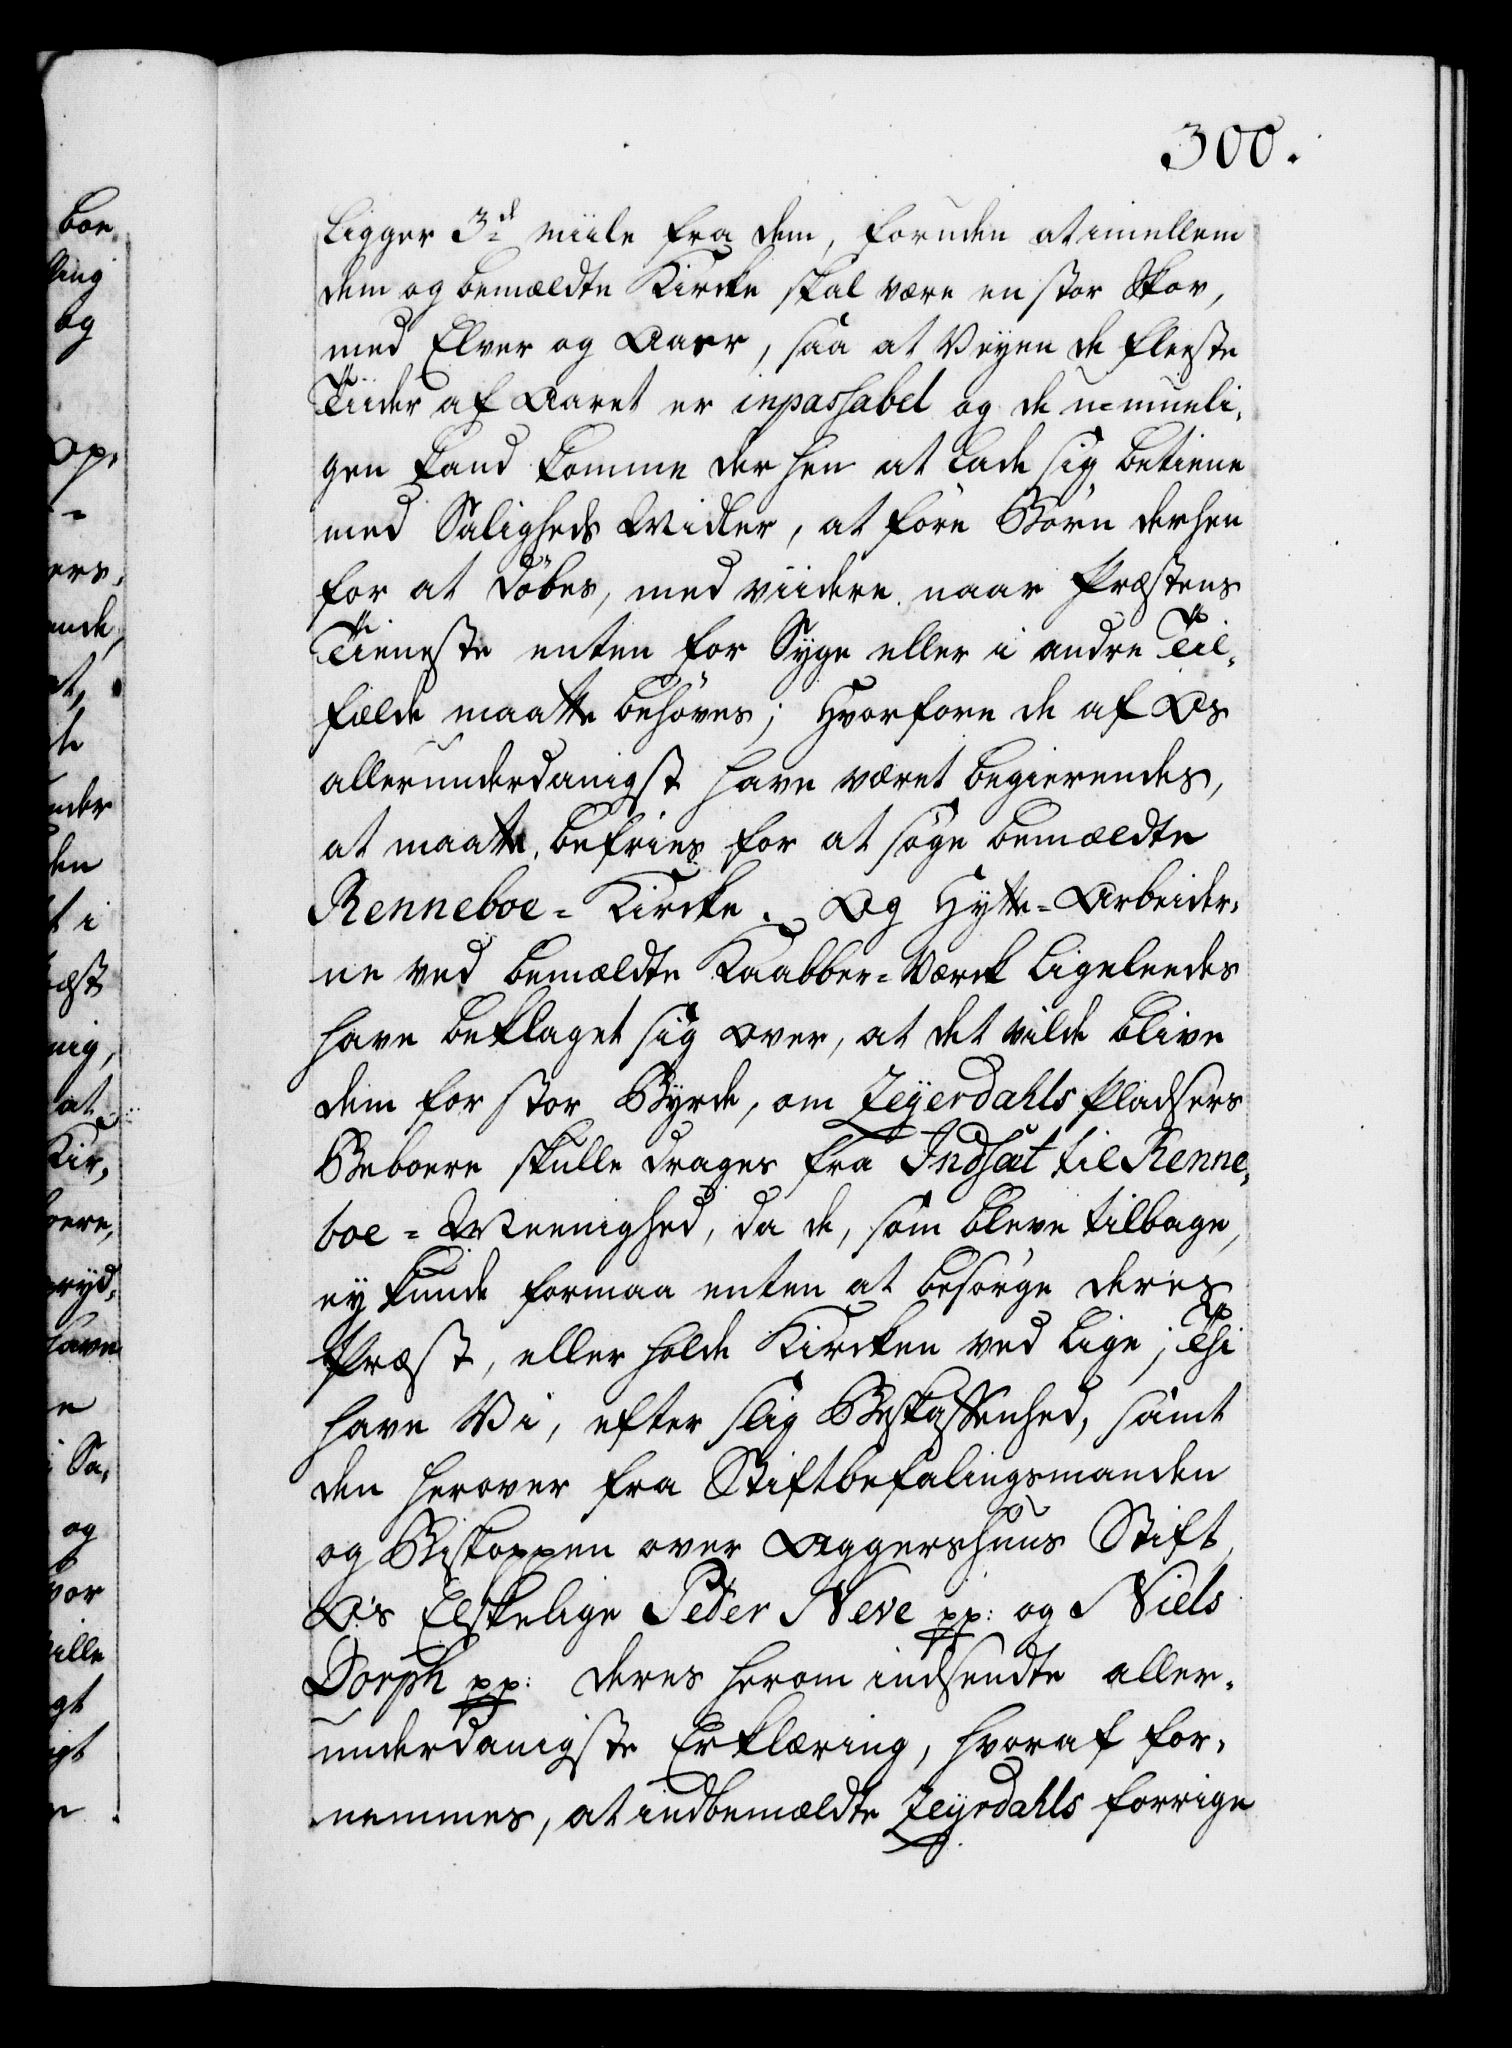 300.
ligger 3de miile fra dem, foruden at imellem
dem og bemældte Kircke skal være en stor Skov,
med Elver og Aaer, saa at Veyen de fleeste
Tiider af Aaret er inpassabel og de u=mueli,
gen kand komme der hen at lade sig betiene
med Saligheds Midler, at före Börn derhen
for at Döbes, med viidere naar Præstens
Tieneste enten for Syge eller i andre Til,
fælde maatte behöves; Hvorfore de af Os
allerunderdanigst have været begierendes,
at maatte befries for at söge bemældte
Renneboe=Kircke. Og Hytte=Arbeider,
ne ved bemældte Kaabber=Værck ligeleedes
have beklaget sig over, at det vilde blive
dem for stor Byrde, om Zeyerdahls Pladsers
Beboere skulle drages fra Indsæt til Renne,
boe=Meenighed, da de, som bleve tilbage,
ey kunde formaa enten at besörge deres
Præst, eller holde Kircken ved lige; Thi
have Vi, efter slig Beskaffenhed, samt
den herover fra Stiftbefalingsmanden
og Biskoppen over Aggershuus Stift,
Os Elskelige Peder Neve pp: og Niels
Dorph pp: deres herom indsendte aller,
underdanigste Erklæring, hvoraf for,
nemmes, at indbemældte Zeyrdahls forrige
boe
ling
og
op,
ers,
ende,
et,
nder
den
t i
æst
nig,
at
Kir,
oere,
ryd,
have
e
i Sa,
og
vor
ville
gt
igt